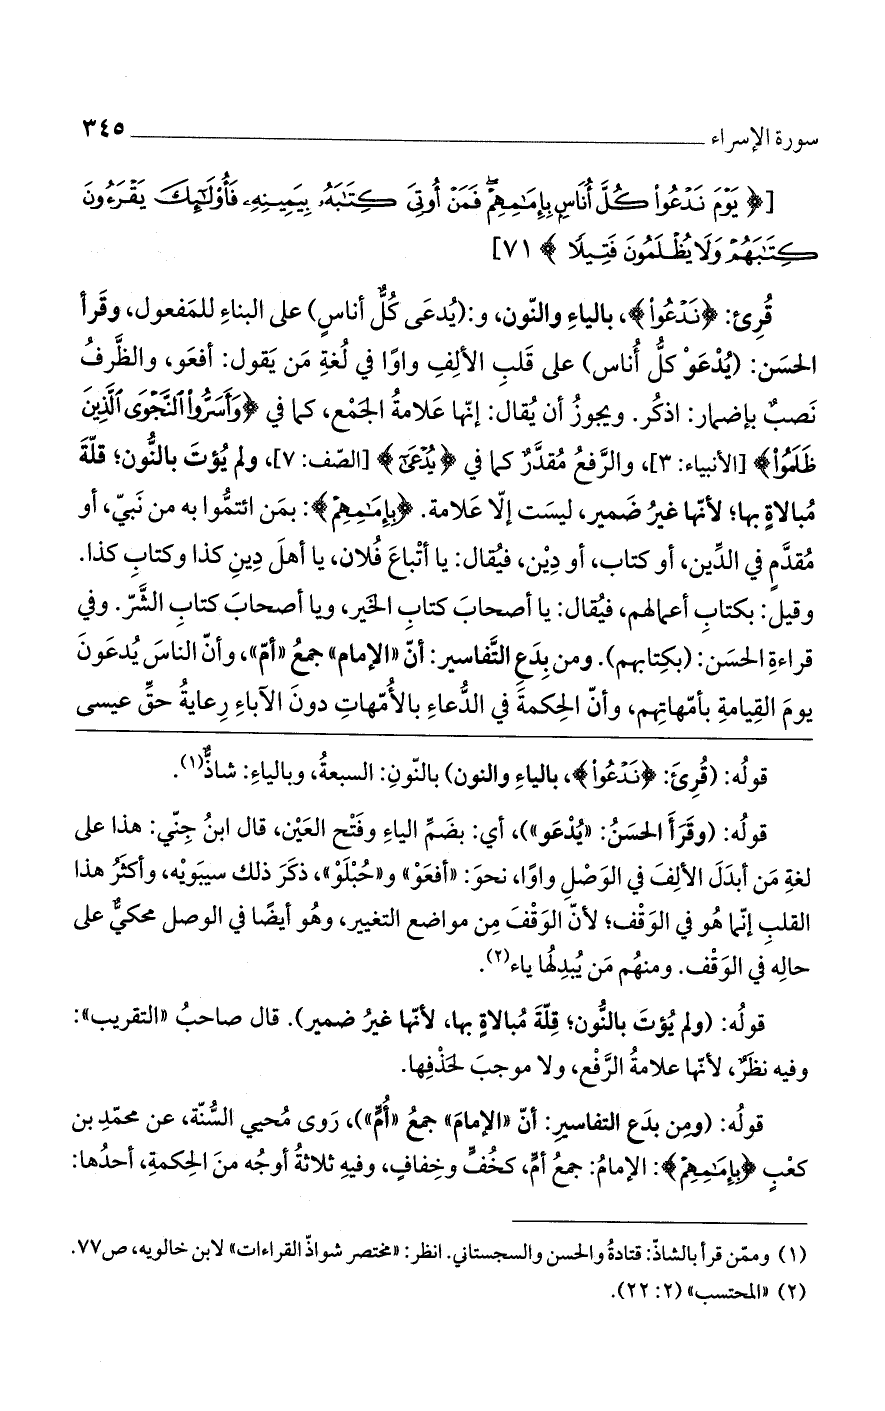 سورة الإسراء ٣٤٥
[﴿ يَوْمَ نَدْعُوا۟ كُلَّ أُنَاسٍ بِإِمَٰمِهِمْ ۖ فَمَنْ أُوتِىَ كِتَٰبَهُۥ بِيَمِينِهِۦ فَأُو۟لَٰٓئِكَ يَقْرَءُونَ
كِتَٰبَهُمْ وَلَا يُظْلَمُونَ فَتِيلًا ﴾ ٧١]
قُرِئ: ﴿نَدْعُوا۟﴾، بالياءِ والنّون، و:(يُدعَى كُلُّ أناسٍ) على البناءِ للمَفعول، وقَرأ
الحسَن: (يُدْعَوْ كلُّ أُناس) على قَلبِ الألِفِ واوًا في لُغةِ مَن يَقول: أفعَو، والظَّرفُ
نَصبٌ بإضمار: اذكُر. ويجوزُ أن يُقال: إنّها عَلامةُ الجَمْع، كما في ﴿وَأَسَرُّوا۟ ٱلنَّجْوَى ٱلَّذِينَ
ظَلَمُوا۟﴾ [الأنبياء: ٣]، والرَّفعُ مُقدَّرٌ كما في ﴿يُدْعَىٰٓ﴾ [الصّف: ٧]، ولم يُؤتَ بالنُّون؛ قلّةَ
مُبالاةٍ بها؛ لأنّها غيرُ ضَمير، ليسَت إلّا عَلامة. ﴿بِإِمَٰمِهِمْ﴾: بمَن ائتمُّوا به من نَبيّ، أو
مُقدَّمٍ في الدِّين، أو كتاب، أو دِيْن، فيُقال: يا أتْباعَ فُلان، يا أهلَ دِينِ كذا وكتابِ كذا.
وقيل: بكتابِ أعمالهم، فيُقال: يا أصحابَ كتابِ الخير، ويا أصحابَ كتابِ الشَّرّ. وفي
قراءةِ الحسَن: (بكِتابِهم). ومن بِدَعِ التَّفاسير: أنّ «الإمام» جمعُ «أمّ»، وأنّ الناسَ يُدعَونَ
يومَ القِيامةِ بأمّهاتِهم، وأنّ الحِكمةَ في الدُّعاءِ بالأُمّهاتِ دونَ الآباءِ رِعايةُ حقِّ عيسى
قولُه: (قُرِئَ: ﴿نَدْعُوا۟﴾، بالياءِ والنون) بالنّونِ: السبعةُ، وبالياءِ: شاذٌّ(١).
قولُه: (وقَرَأَ الحَسَنُ: «يُدْعَو»)، أي: بضَمِّ الياءِ وفَتْحِ العَيْن، قال ابنُ جِنّي: هذا على
لغةِ مَن أبدَلَ الألِفَ في الوَصْلِ واوًا، نحوَ: «أفعَوْ» و«حُبْلَوْ»، ذكَرَ ذلك سيبَوَيْه، وأكثرُ هذا
القلبِ إنّما هُو في الوَقْف؛ لأنّ الوَقْفَ مِن مواضعِ التغيير، وهُو أيضًا في الوصلِ محكيٌّ على
حالِه في الوَقْف. ومنهُم مَن يُبدِلُها ياء(٢).
قولُه: (ولم يُؤتَ بالنُّون؛ قِلّةَ مُبالاةٍ بها، لأنّها غيرُ ضمير). قال صاحبُ «التقريب»:
وفيه نظَرٌ، لأنّها علامةُ الرَّفْع، ولا موجبَ لحَذْفِها.
قولُه: (ومِن بدَعِ التفاسيرِ: أنّ «الإمامَ» جمعُ «أُمٍّ»)، رَوى مُحيي السُّنّة، عن محمّدِ بن
كعْبٍ ﴿بِإِمَٰمِهِمْ﴾: الإمامُ: جمعُ أمٍّ، كخُفٍّ وخِفافٍ، وفيهِ ثلاثةُ أوجُه منَ الحِكمةِ، أحدُها:
(١) وممّن قرأ بالشاذّ: قتادةُ والحسن والسجستاني. انظر: «مختصر شواذّ القراءات» لابن خالويه، ص٧٧.
(٢) «المحتسب» (٢: ٢٢).